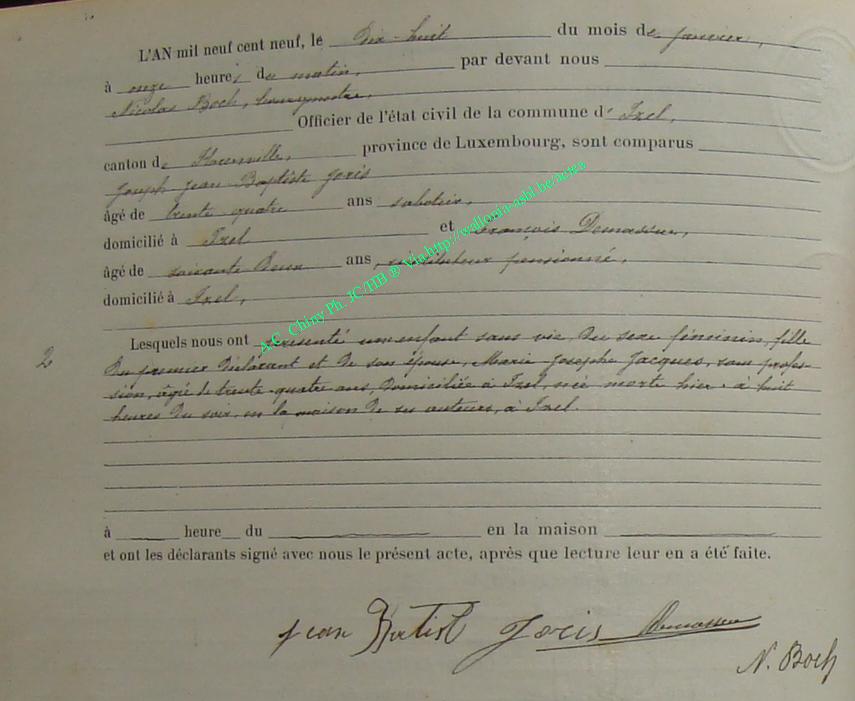 L'AN mil neuf cent neuf, le dix-huit du mois de janvier,
à onze heures du matin, par devant nous
Nicolas Boch, bourgmestre,
Officier de l'état civil de la commune d'Izel,
canton de Florenville, province de Luxembourg, sont comparus
Joseph Jean Baptiste Joris
âgé de trente quatre ans sabotier,
domicilié à Izel et François Demasseux,
âgé de soixante deux ans, instituteur pensionné,
domicilié à Izel,
2
Lesquels nous ont présenté un enfant sans vie, du sexe féminin, fille
du premier déclarant et de son épouse, Marie Josephe Jacques, sans profes-
sion, âgée de trente quatre ans, domiciliée à Izel, née morte hier à huit
heures du soir, en la maison de ses auteurs, à Izel.
à heure du en la maison
et ont les déclarants signé avec nous le présent acte, après que lecture leur en a été faite.
Jean Batist Joris
N. Boch
A.C. Chiny Ph. JC/HB ® Via http://wallonia-asbl.be/acwa